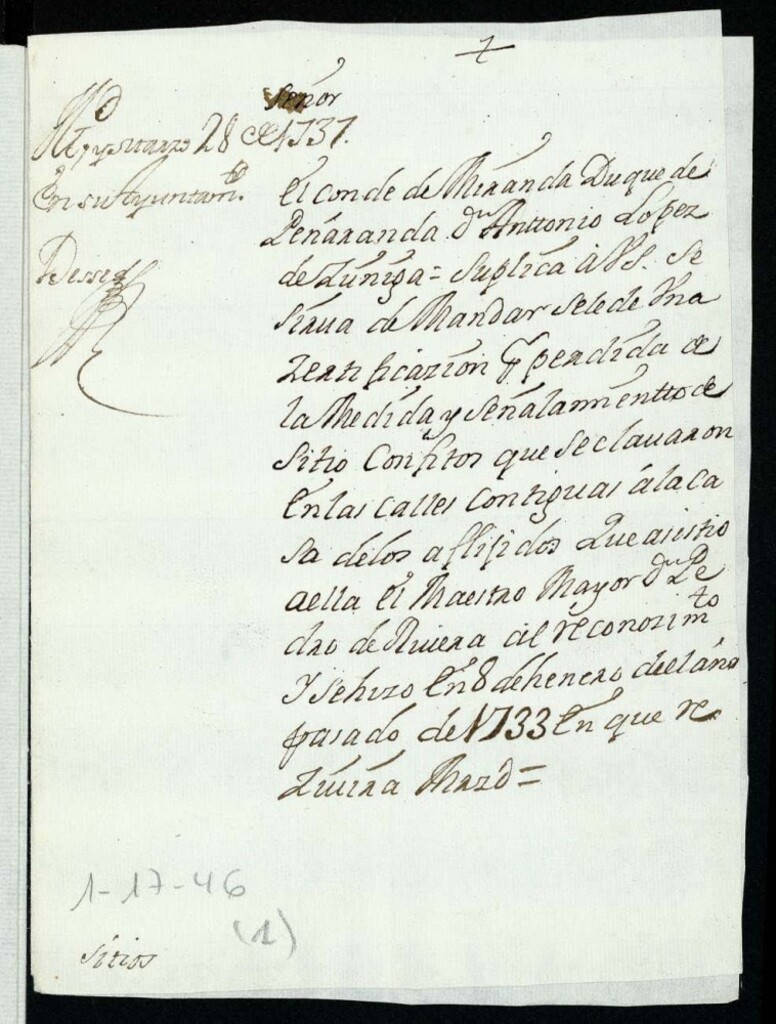 +
Señor
Md
y marzo 28 de 1737.
En su Ayuntamto.
Dessele
El conde de Miranda Duque de
Peñaranda Dn Anttonio Lopez
de Zuñiga = Suplica à VS. Se
sirua de Mandar sele de Una
Zertificazion ô perdida de
la Medida y señalamientto de
Sitio Con fitos que se clauaron
En las calles Contiguas á la ca
sa de los aflijidos Que asistio
a ella El Maestro Mayor Dn Pe
dro de Riuera al reconozimto
Y se hizo En 8 de henero del año
pasado de 1733 En que re
ziuira Mrzd =
1-17-46
(1)
sitios